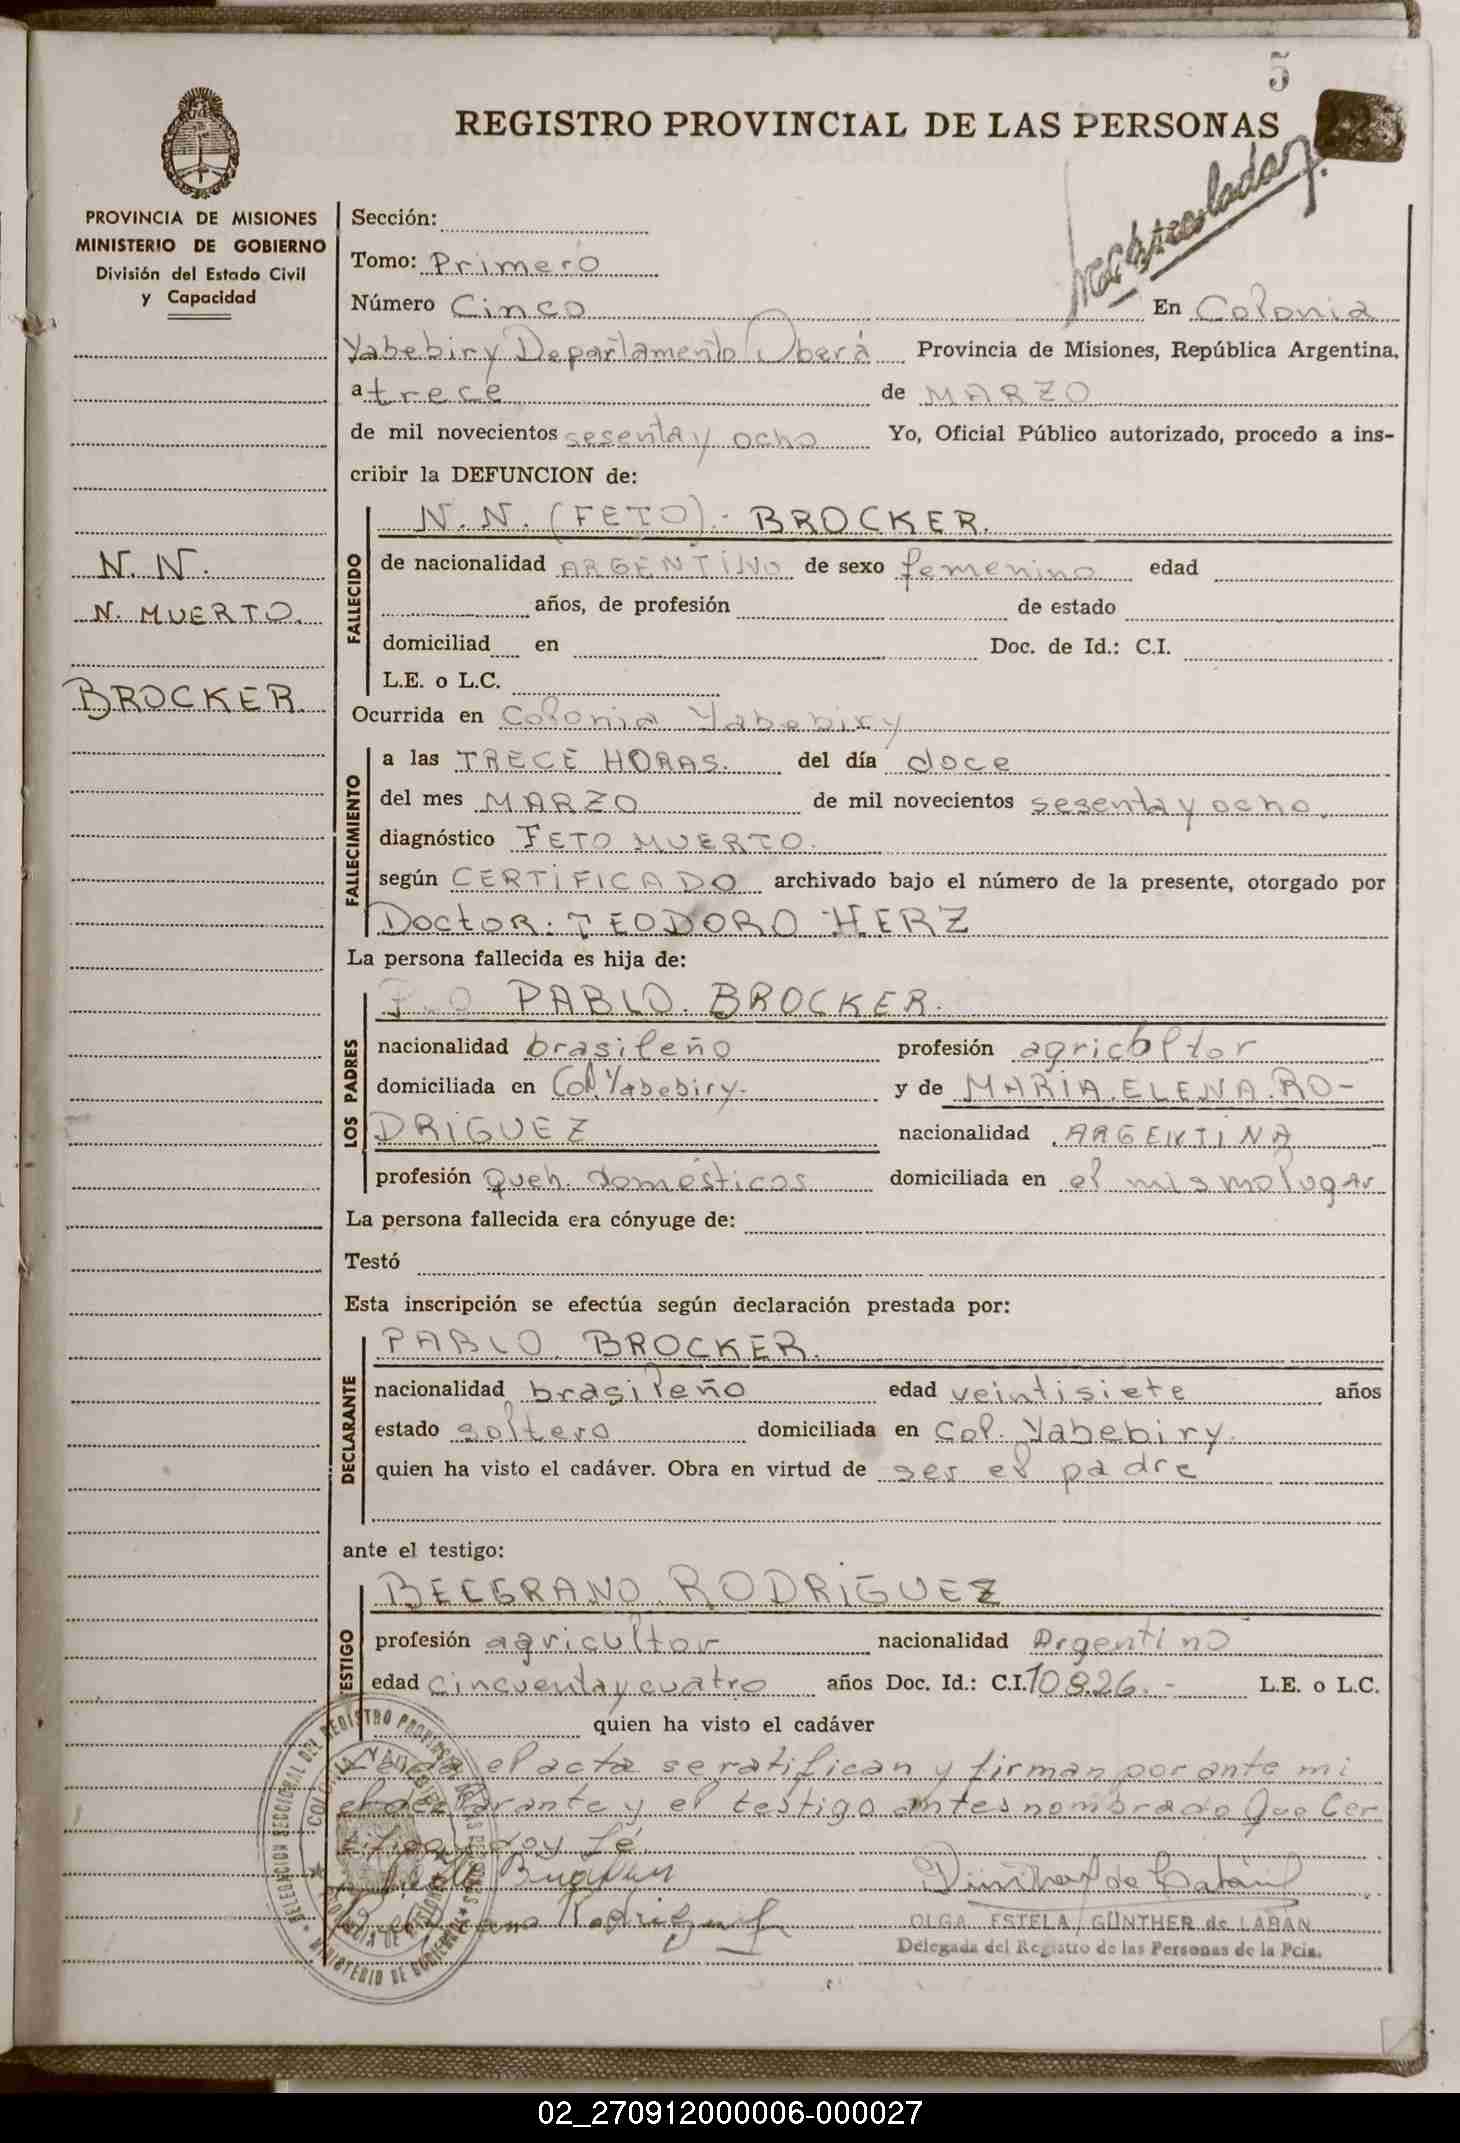 5
REGISTRO PROVINCIAL DE LAS PERSONAS
PROVINCIA DE MISIONES
MINISTERIO DE GOBIERNO
División del Estado Civil
y Capacidad
Sección:
Tomo: Primero
Número Cinco En Colonia
Yabebiry Departamento Oberá Provincia de Misiones, República Argentina,
a trece de MARZO
de mil novecientos sesenta y ocho Yo, Oficial Público autorizado, procedo a ins-
cribir la DEFUNCION de:
N.N.
N. MUERTO.
BROCKER.
FALLECIDO
N. N. (FETO).- BROCKER.
de nacionalidad ARGENTINO de sexo femenino edad
años, de profesión de estado
domiciliad en Doc. de Id.: C.I.
L.E. o L.C.
Ocurrida en Colonia Yabebiry
FALLECIMIENTO
a las TRECE HORAS. del día doce
del mes MARZO de mil novecientos sesenta y ocho.
diagnóstico FETO MUERTO.
según CERTIFICADO archivado bajo el número de la presente, otorgado por
Doctor: TEODORO HERZ
La persona fallecida es hija de:
LOS PADRES
PABLO. BROCKER.
nacionalidad brasileño profesión agricoltor
domiciliada en Col. Yabebiry- y de MARIA ELENA RO-
DRIGUEZ nacionalidad ARGENTINA
profesión Queh. domésticos domiciliada en el mismo lugar
La persona fallecida era cónyuge de:
Testó
Esta inscripción se efectúa según declaración prestada por:
DECLARANTE
PABLO. BROCKER.
nacionalidad brasileño edad veintisiete años
estado soltero domiciliada en Col. Yabebiry.
quien ha visto el cadáver. Obra en virtud de ser el padre
ante el testigo:
TESTIGO
BELGRANO RODRIGUEZ
profesión agricultor nacionalidad Argentino
edad cincuenta y cuatro años Doc. Id.: C.I. 10826.- L.E. o L.C.
quien ha visto el cadáver
el acta se ratifican y firman por ante mi
el declarante y el testigo antes nombrado Que Cer
tifico y doy fé
Rodriguez
OLGA ESTELA GÜNTHER de LABAN
Delegada del Registro de las Personas de la Pcia.
02_270912000006-000027